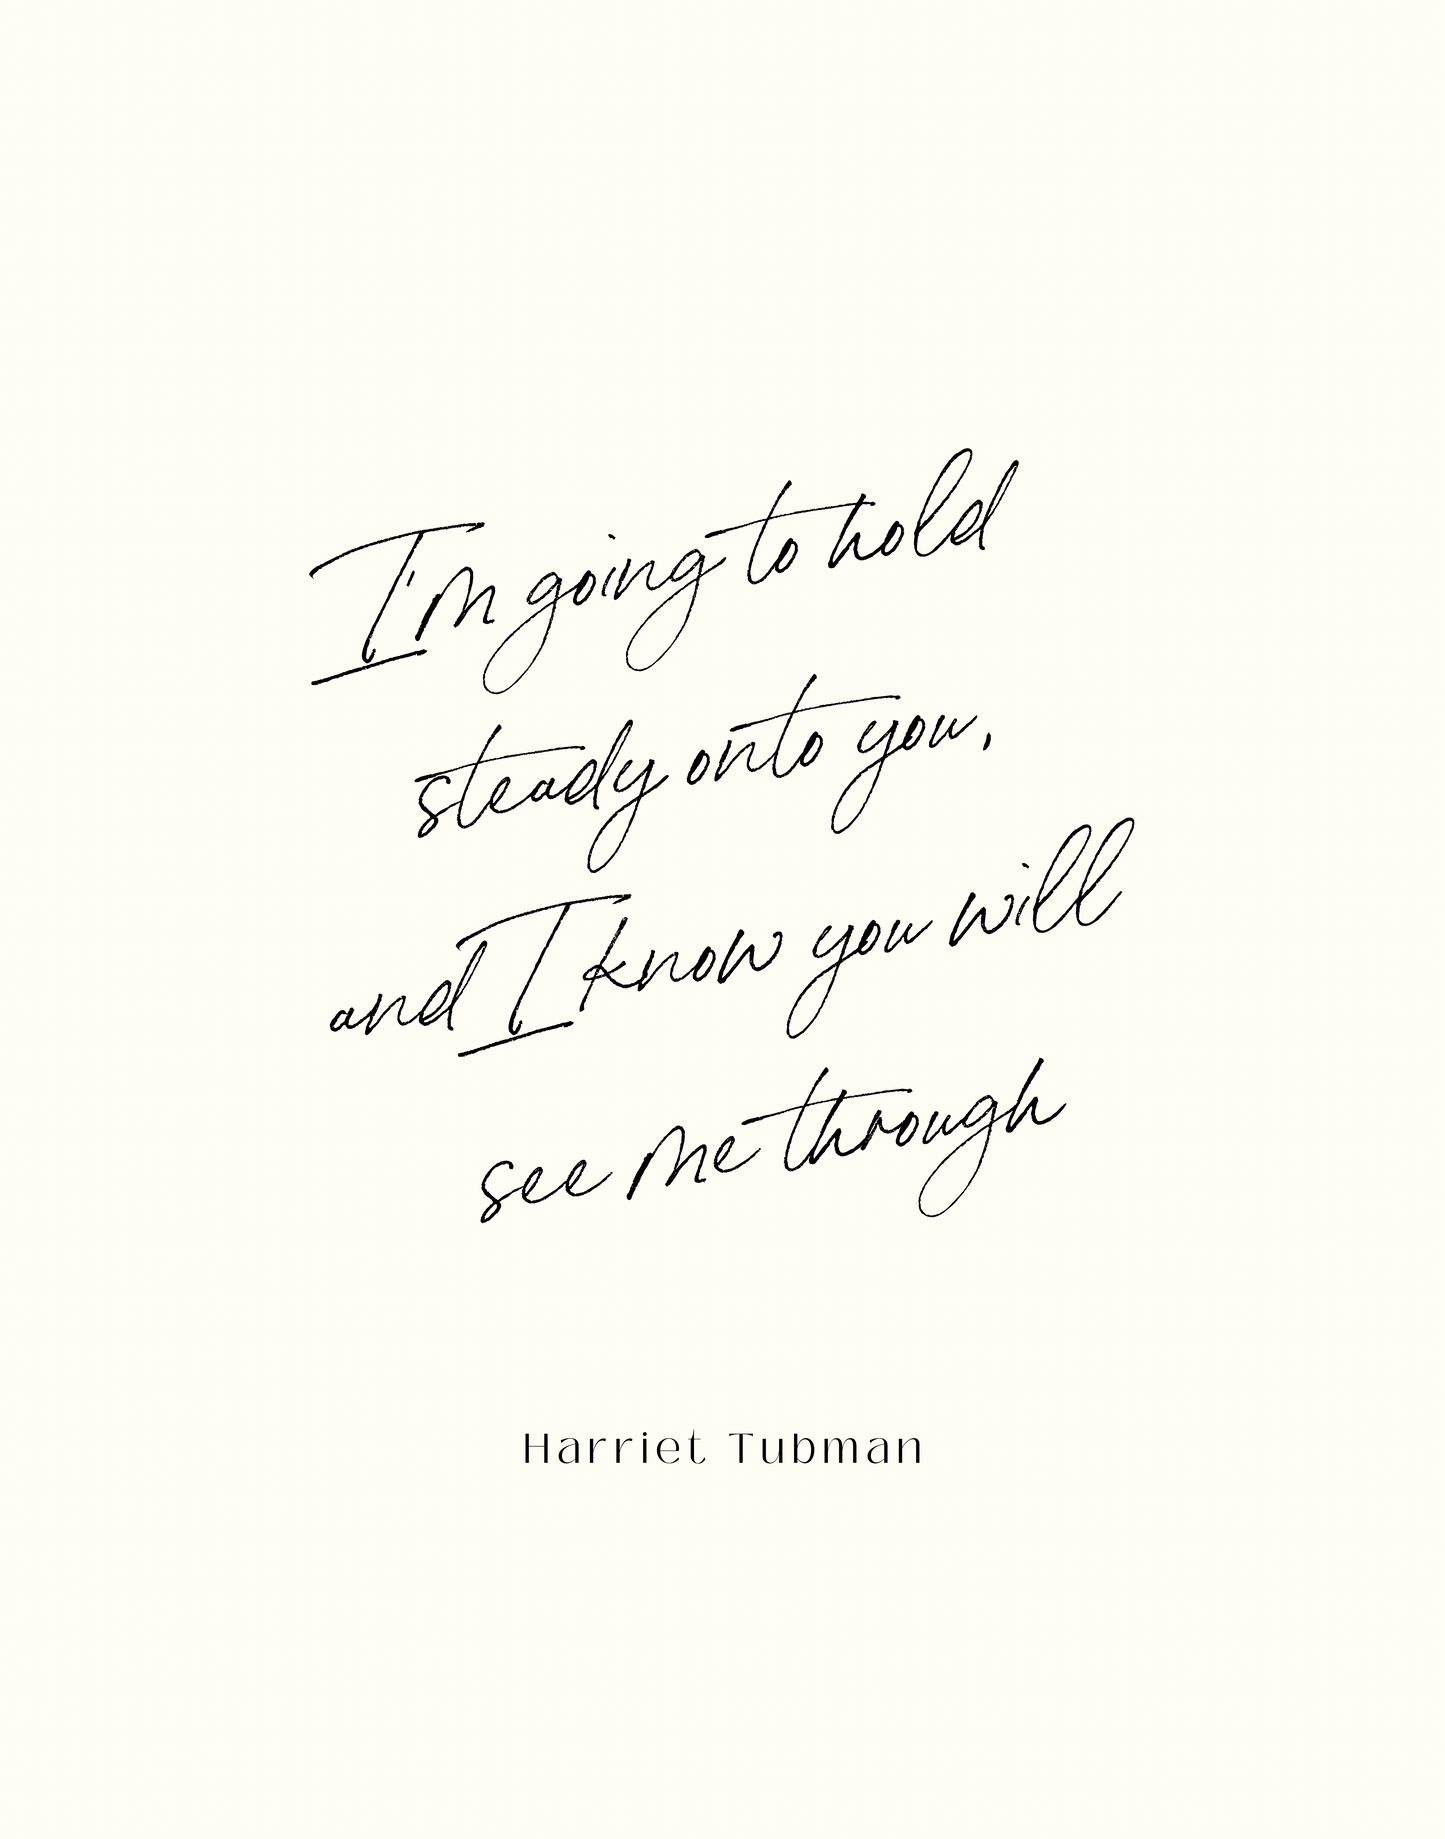 I'm going to hold
steady onto you,
and I know you will
see me through
Harriet Tubman